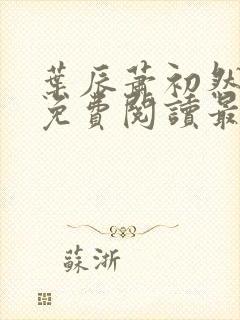 葉辰蕭初然
免費閱讀最
蘇浙